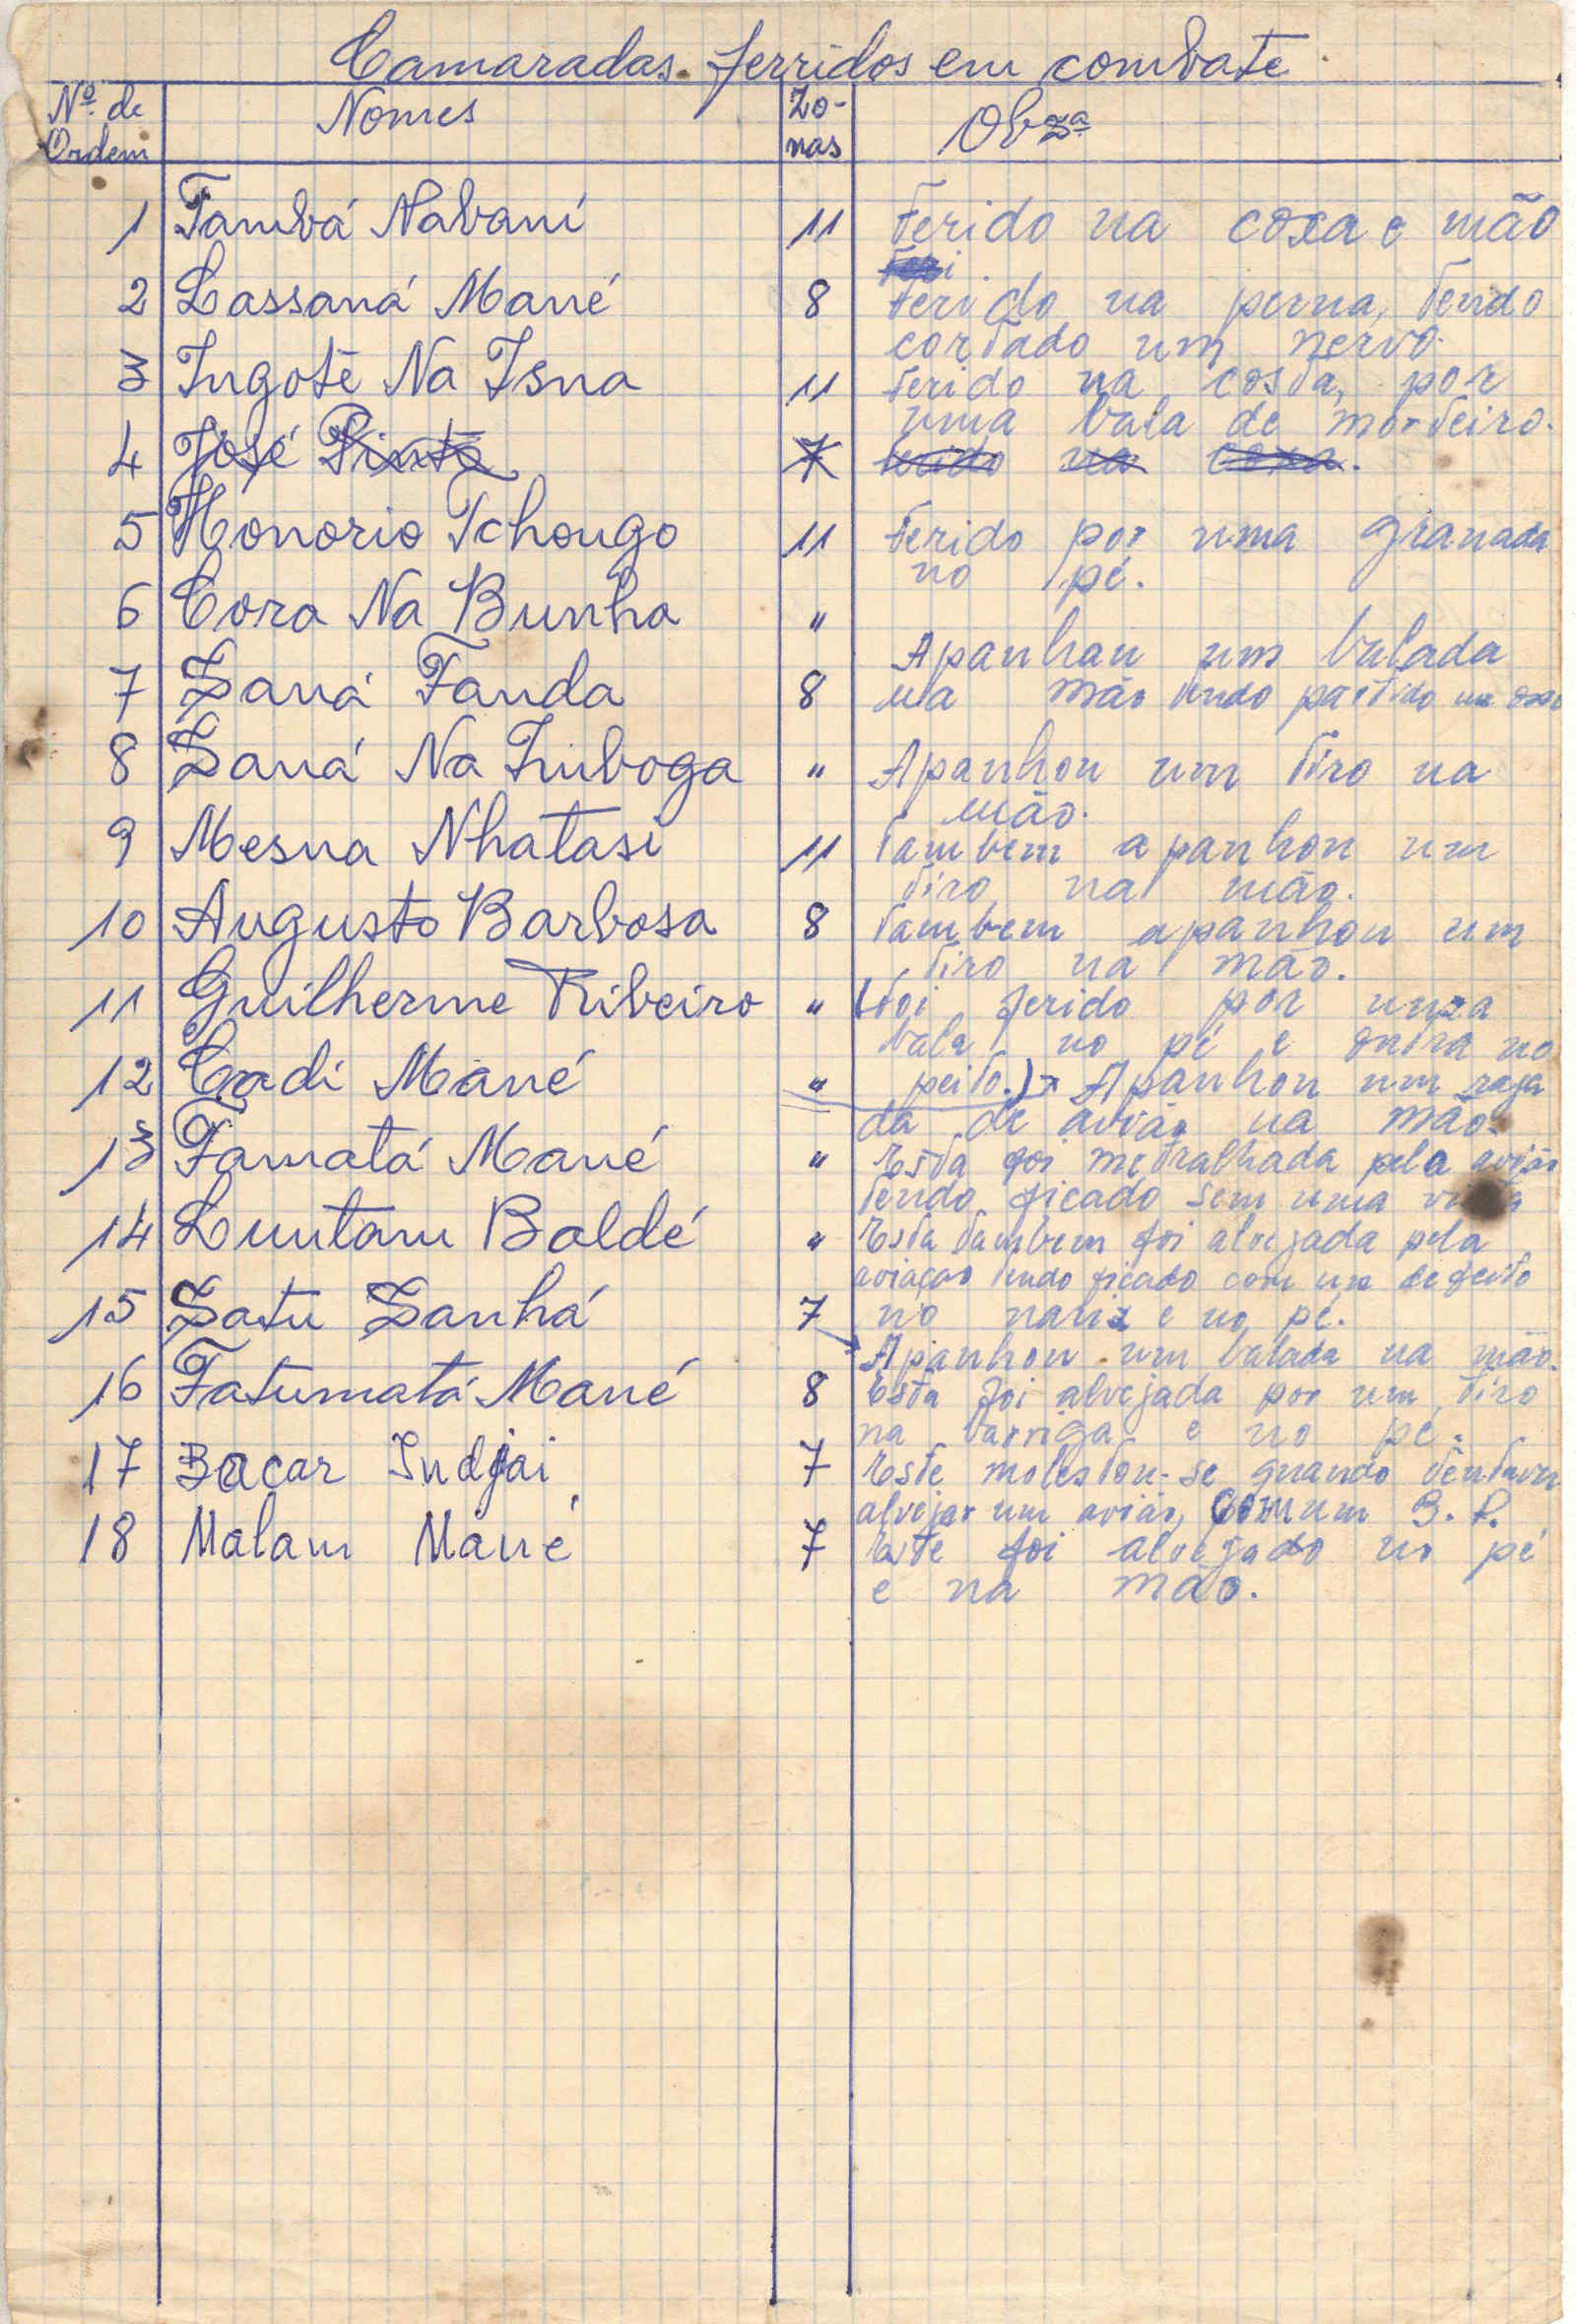 Camaradas ferridos em combate
Nº de Ordem Nomes Zo-nas Obzª
1 Tambá Nabani 11 Ferido na coxa e mão
2 Lassaná Mané 8 Ferido na perna, tendo
cortado um nervo.
3 Ingoté Na Isna 11 Ferido na costa, por
uma bala de morteiro.
4 José Pinto 7 ferido na coxa.
5 Honorio Tchongo 11 Ferido por uma granada
no pé.
6 Cora Na Bunha "
Apanhau um balada
7 Saná Fanda 8 na mão tendo partido um osso
8 Saná Na Imboga " Apanhou um tiro na
mão.
9 Mesna Nhatasi 11 Tambem apanhou um
tiro na mão.
10 Augusto Barbosa 8 Tambem apanhou um
tiro na mão.
11 Guilherme Ribeiro " (Foi ferido por uma
bala no pé e outra no
12 Cadi Mané " peito.) Apanhou um raja
da de avião na mão.
13 Famatá Mané " Esta foi metralhada pela avião
tendo ficado sem uma
14 Luntam Baldé " Esta tambem foi alvejada pela
aviaçao tendo ficado com um defeito
15 Satu Sanhá 7 no nariz e no pé.
Apanhou um balada na mão.
16 Fatumatá Mané 8 Esta foi alvejada por um tiro
na barriga e no pé.
17 Bacar Indjai 7 Este molestou-se quando tentava
alvejar um avião, com um
18 Malam Mané 7 Este foi alvejado no pé
e na mão.